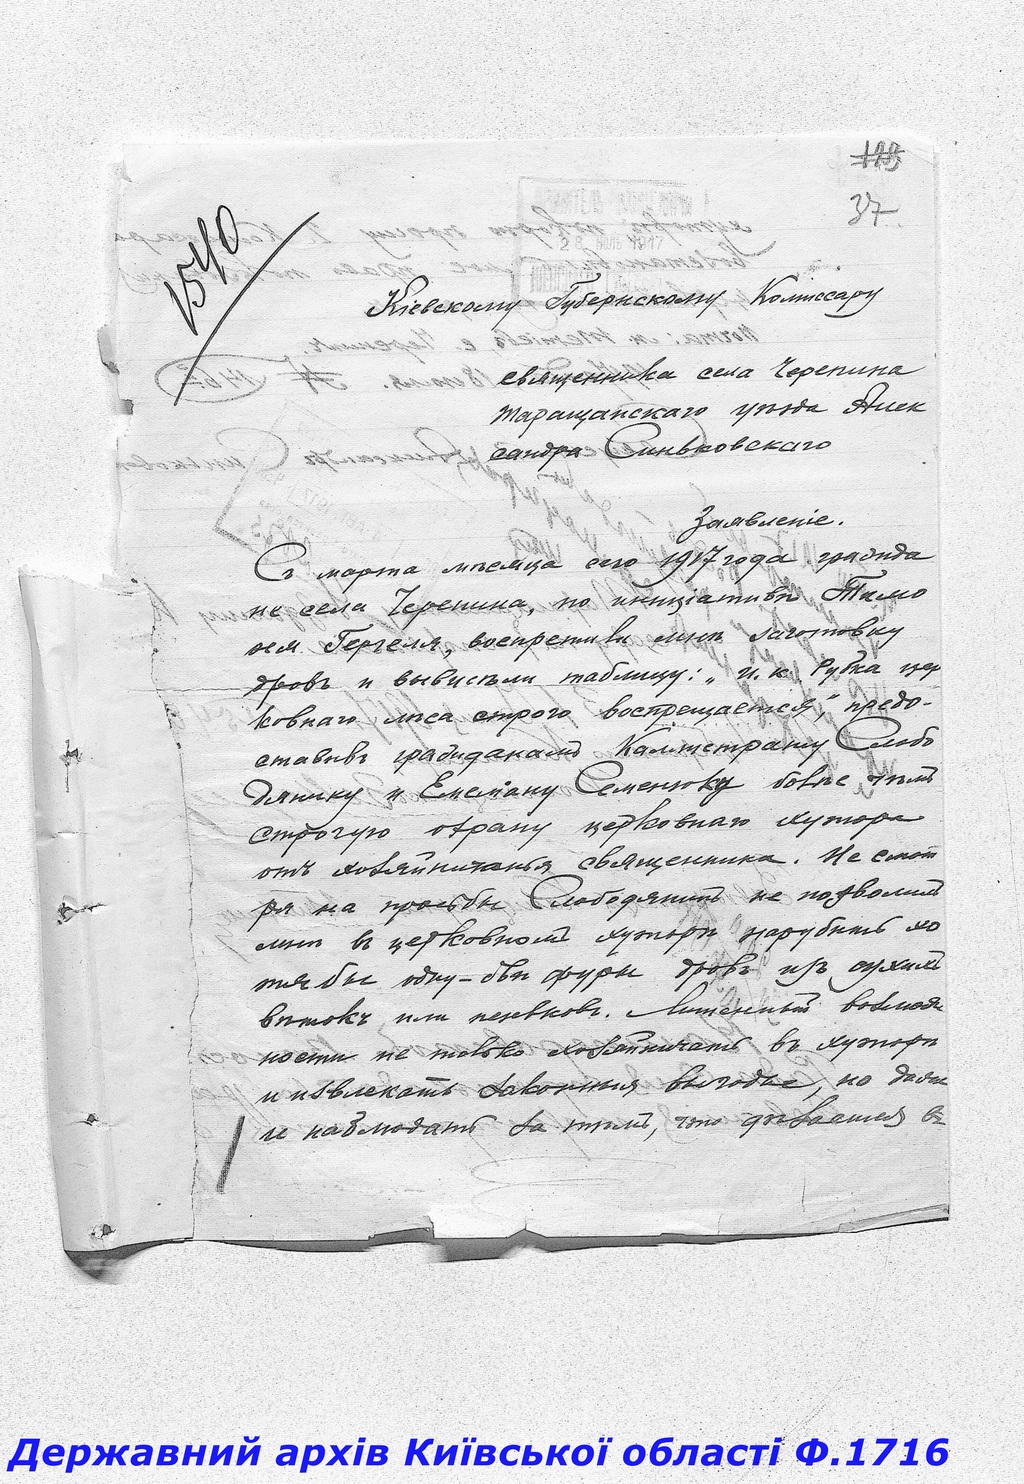 133
37
1540
28 июль 1917
Кіевскому Губернскому Коміссару
священника села Черепина
Таращанскаго уѣзда Алек
сандра Синьковскаго
Заявленіе.
Съ марта мѣсяца сего 1917 года гражда
не села Черепина, по иниціативѣ Тимо
ѳея Гергеля, воспретили мнѣ заготовку
дровъ и вывѣсили таблицу: „ч. к. Рубка цер
ковнаго лѣса строго воспрещается“, предо-
ставивъ гражданамъ Каллистрату Слобо
дянику и Емеліану Семенюку болѣе чѣмъ
строгую охрану церковнаго хутора
отъ хозяйничанья священника. Не смот
ря на просьбы Слободяникъ не позволилъ
мнѣ въ церковномъ хуторѣ нарубить хо
тя бы одну-двѣ фуры дровъ изъ сухихъ
вѣтокъ или пеньковъ. Лишенный возмож
ности не только хозяйничать въ хуторѣ
и извлекать законныя выгоды, но даже
и наблюдать за тѣмъ, что дѣлается въ
Державний архів Київської області Ф.1716